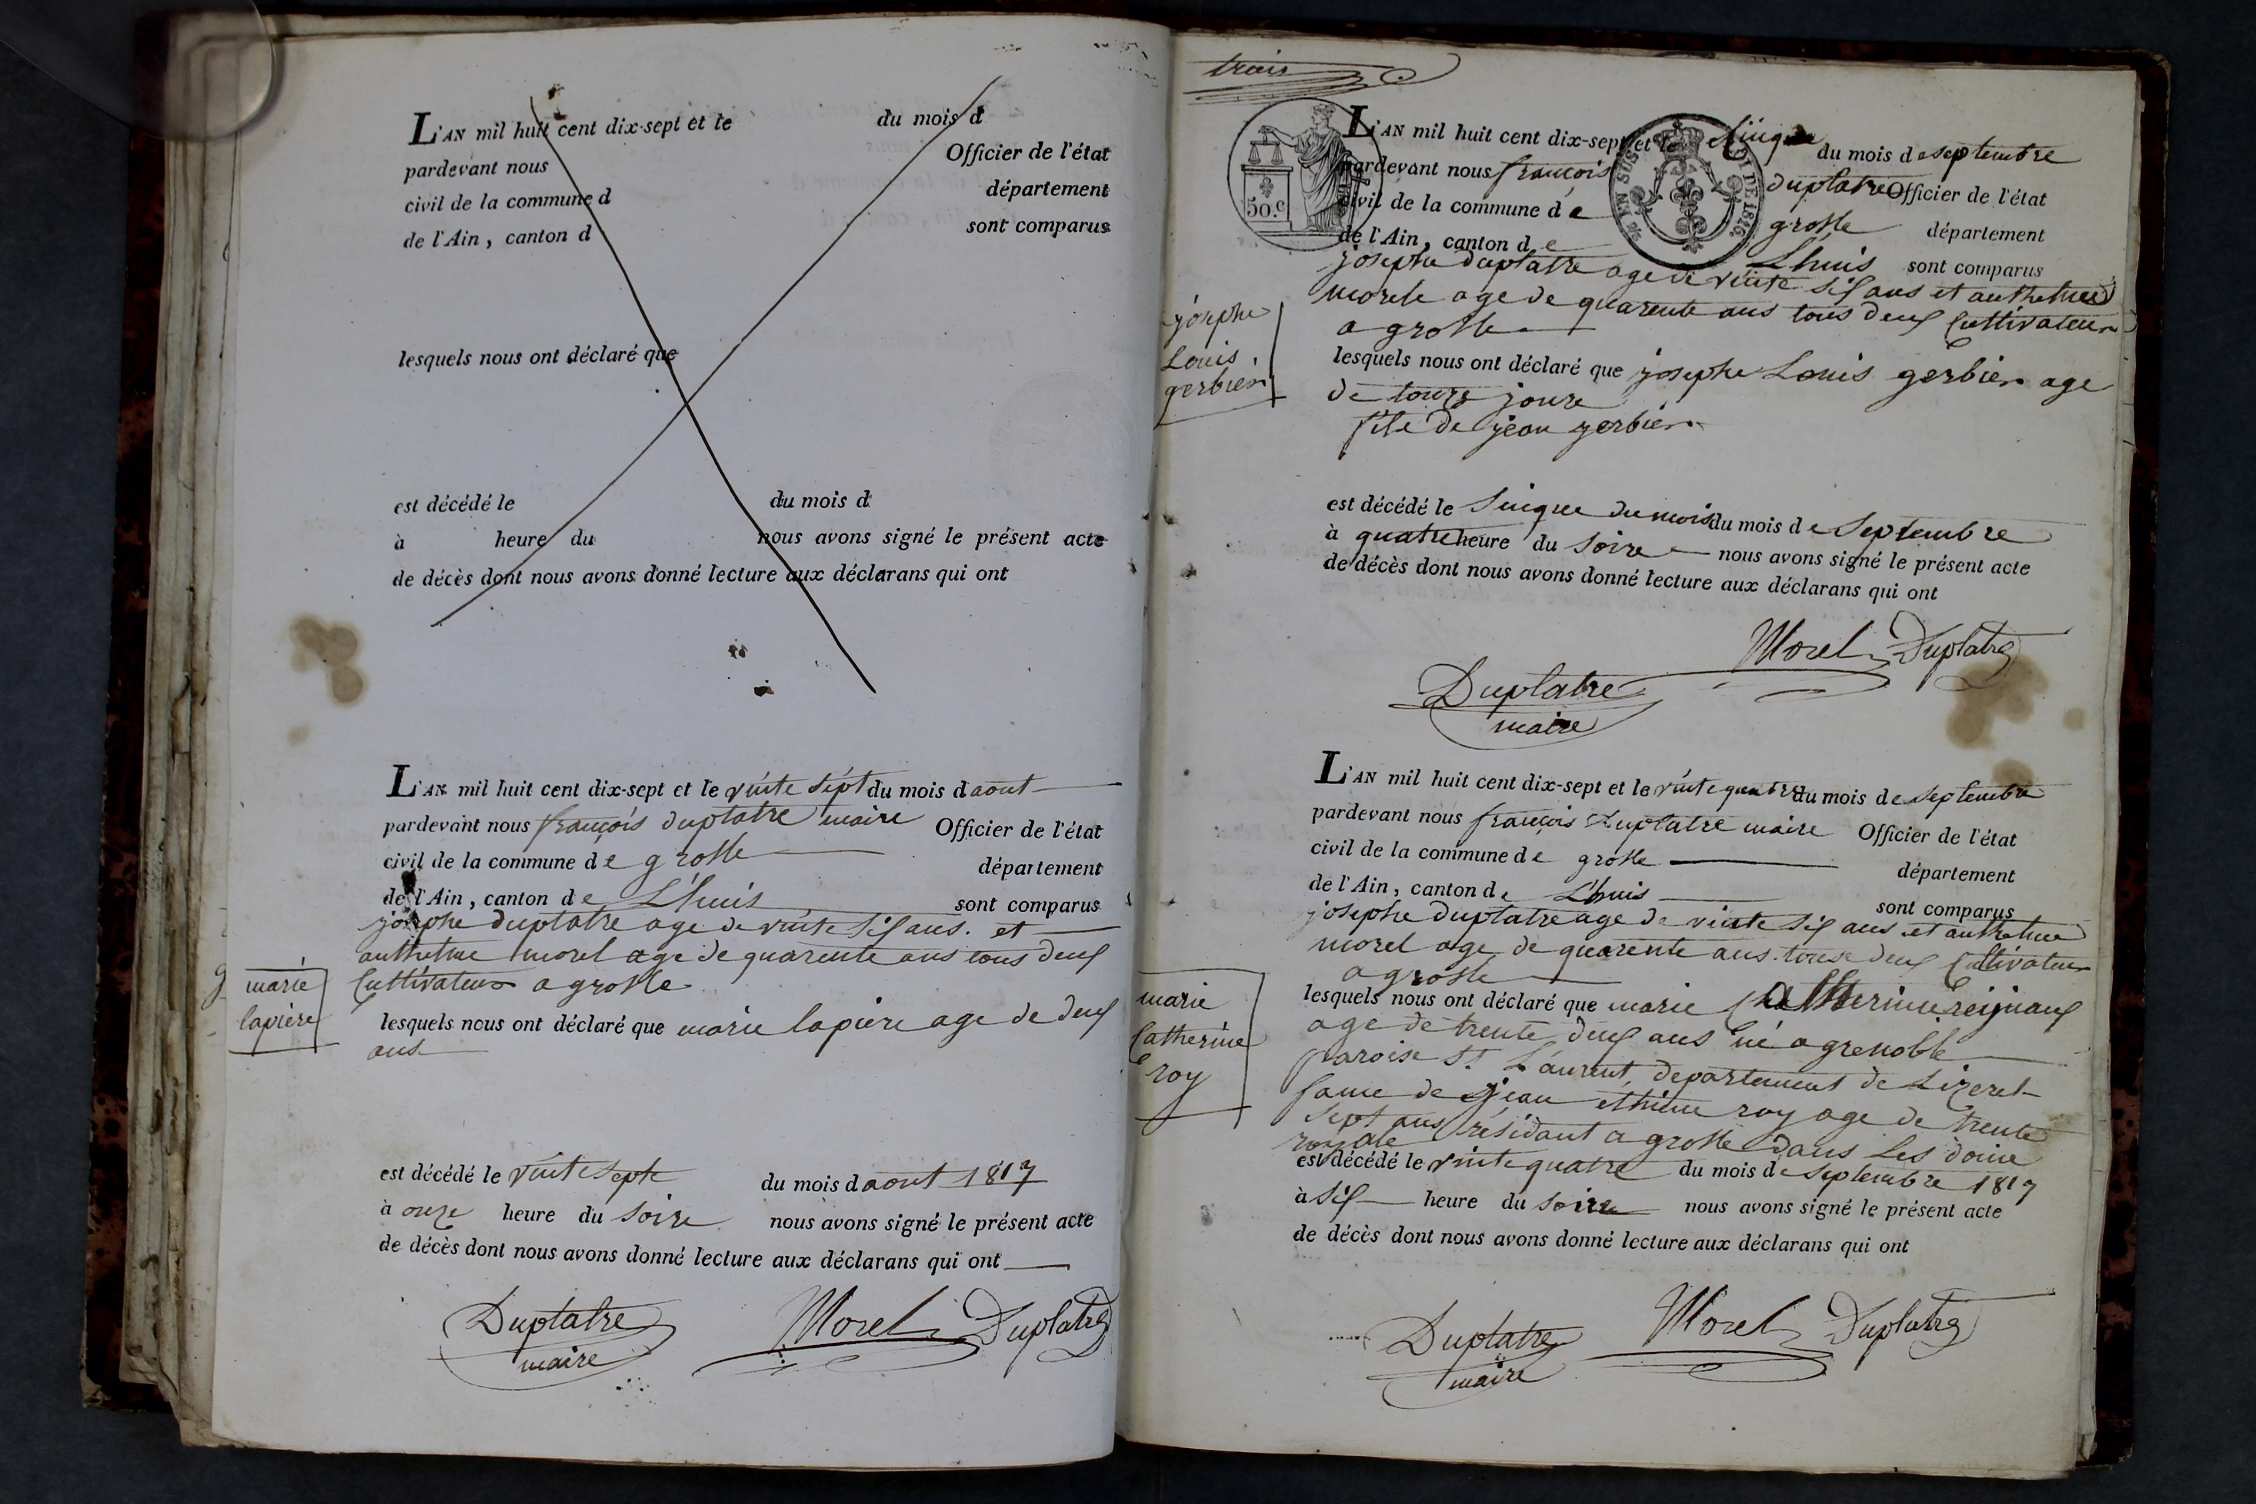 L'AN mil huit cent dix-sept et le du mois d
pardevant nous Officier de l'état
civil de la commune d département
de l'Ain, canton d sont comparus
lesquels nous ont déclaré que
est décédé le du mois d
à heure du nous avons signé le présent acte
de décès dont nous avons donné lecture aux déclarans qui ont
L'AN mil huit cent dix-sept et le vinte sept du mois d aout
pardevant nous françois duplatre maire Officier de l'état
civil de la commune de groslle département
de l'Ain, canton de L'huis sont comparus
josephe duplatre age de vinte sis ans. et
anthelme morel age de quarente ans tous deux
Cultivateur a groslle
marie
lapiere
lesquels nous ont déclaré que marie lapiere age de deux
ans
est décédé le vinte septe du mois d aout 1817
à onze heure du soire nous avons signé le présent acte
de décès dont nous avons donné lecture aux déclarans qui ont
Duplatre Morel Duplatre
maire
trois
50.c
DE 1816.
L'AN mil huit cent dix-sept et le Sinque du mois de septembre
pardevant nous françois duplatre Officier de l'état
civil de la commune de groslle département
de l'Ain, canton de Lhuis sont comparus
josephe duplatre age de vinte sis ans et anthelme
morele age de quarente ans tous deux Cultivateur
a groslle
josephe
Louis
gerbier
lesquels nous ont déclaré que josephe Louis gerbier age
de jours
fils de jean gerbier
est décédé le Sinque du mois du mois de Septembre
à quatre heure du soire nous avons signé le présent acte
de décès dont nous avons donné lecture aux déclarans qui ont
Morel Duplatre
Duplatre
maire
L'AN mil huit cent dix-sept et le vinte quatre du mois de septembre
pardevant nous françois duplatre maire Officier de l'état
civil de la commune de groslle département
de l'Ain, canton de L'huis sont comparus
josephe duplatre age de vinte sis ans et anthelme
morel age de quarente ans touse deux Cultivateur
a groslle
marie
Catherine
roy
lesquels nous ont déclaré que marie Catherine
age de trente deux ans né a grenoble
paroise St Laurent, departement de
fame de jean ethiene roy age de trente
sept ans résidant a groslle dans les
est décédé le vinte quatre du mois de septembre 1817
à sis heure du soire nous avons signé le présent acte
de décès dont nous avons donné lecture aux déclarans qui ont
Duplatre Morel Duplatre
maire